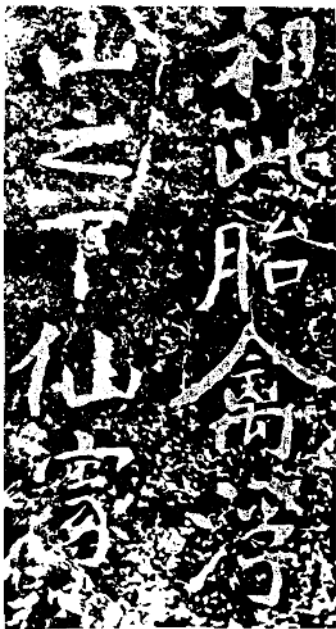 相此胎禽浮
山之下仙家